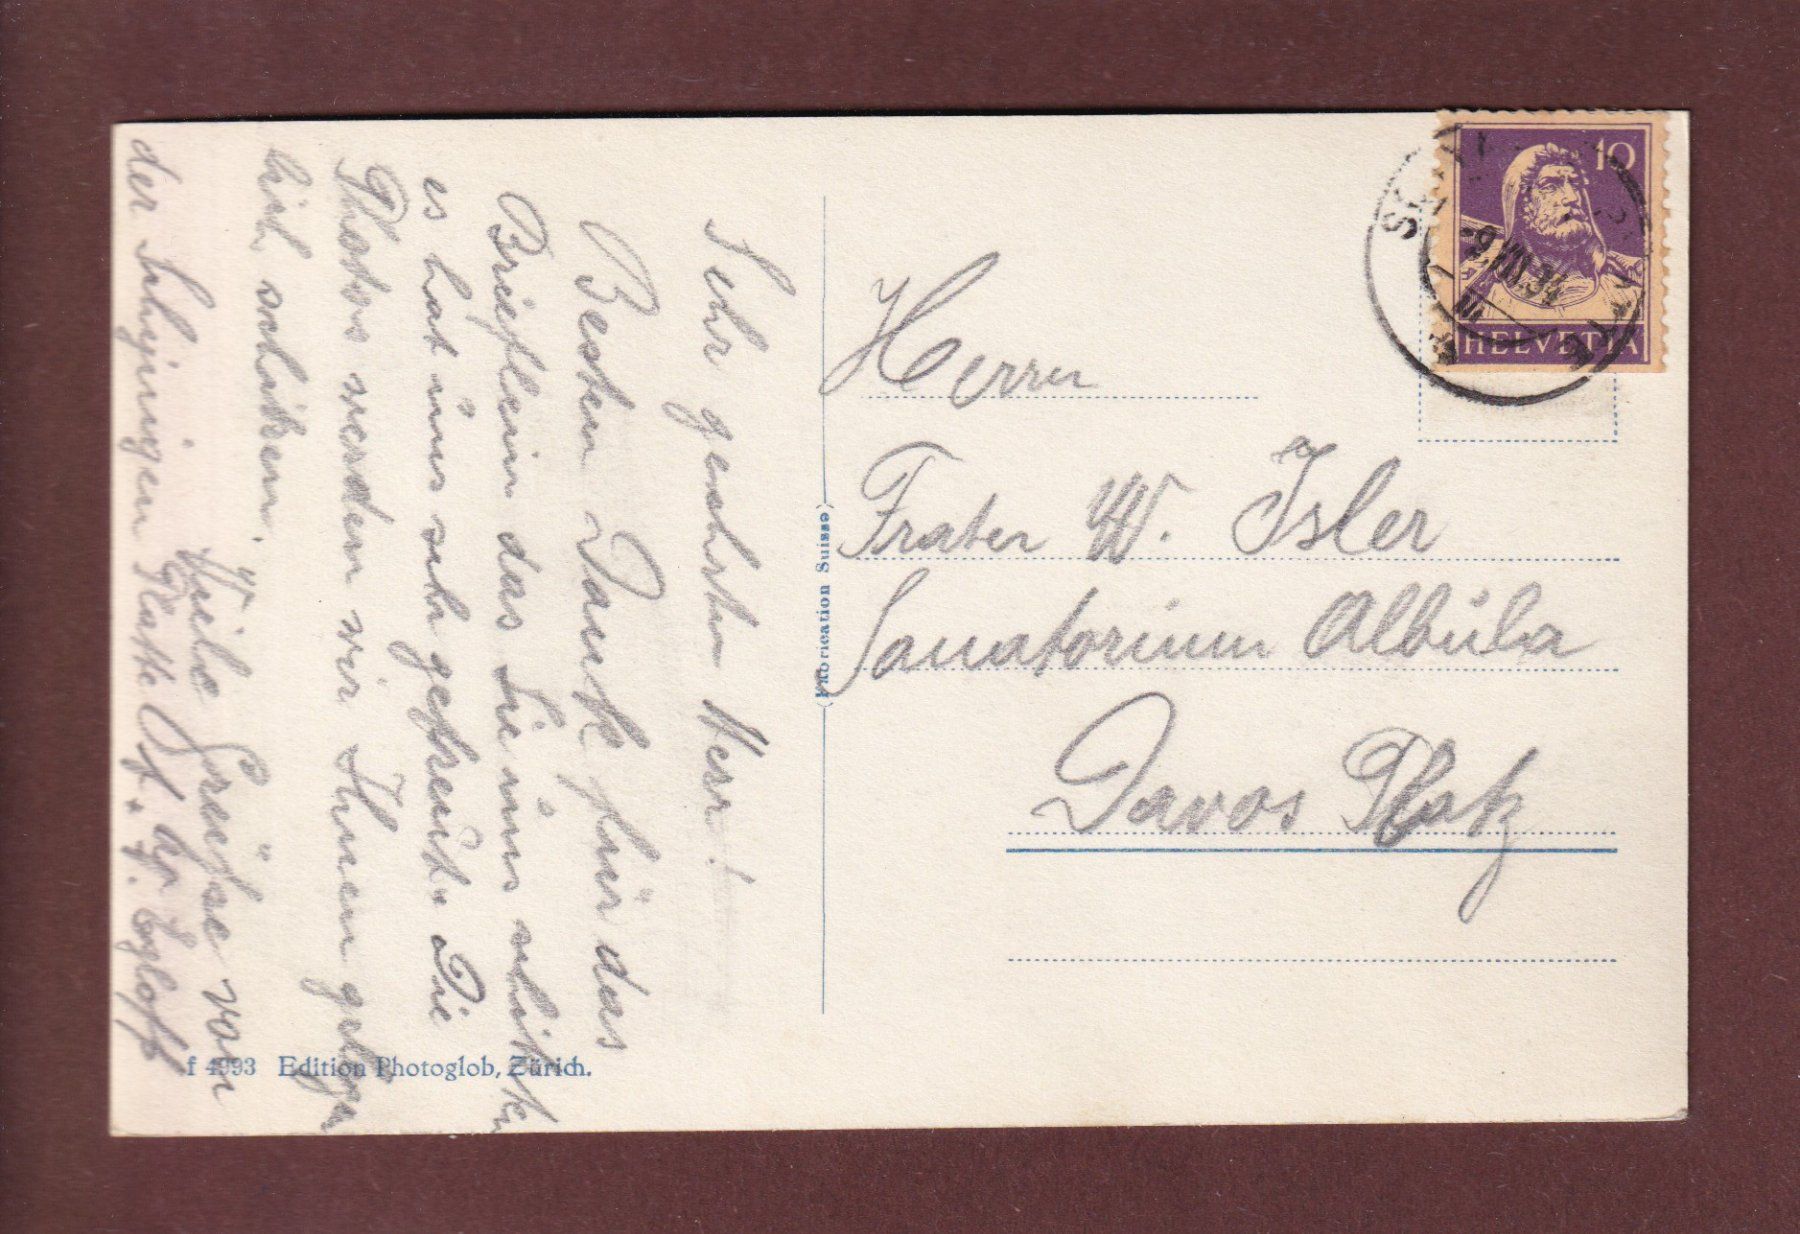 Sehr geehrter Herr!
Besten Dank für das
Brieflein das Sie uns schikten
es hat uns sehr gefreut. Die
Photos werden wir Ihnen gelegen
lich schiken.
Viele Grüsse von
der Platte Of. Egloff
(Fabrication Suisse)
f 4993 Edition Photoglob, Zürich.
10
-9.VIII.34
HELVETIA
Herrn
Frater W. Isler
Sanatorium Albula
Davos Platz